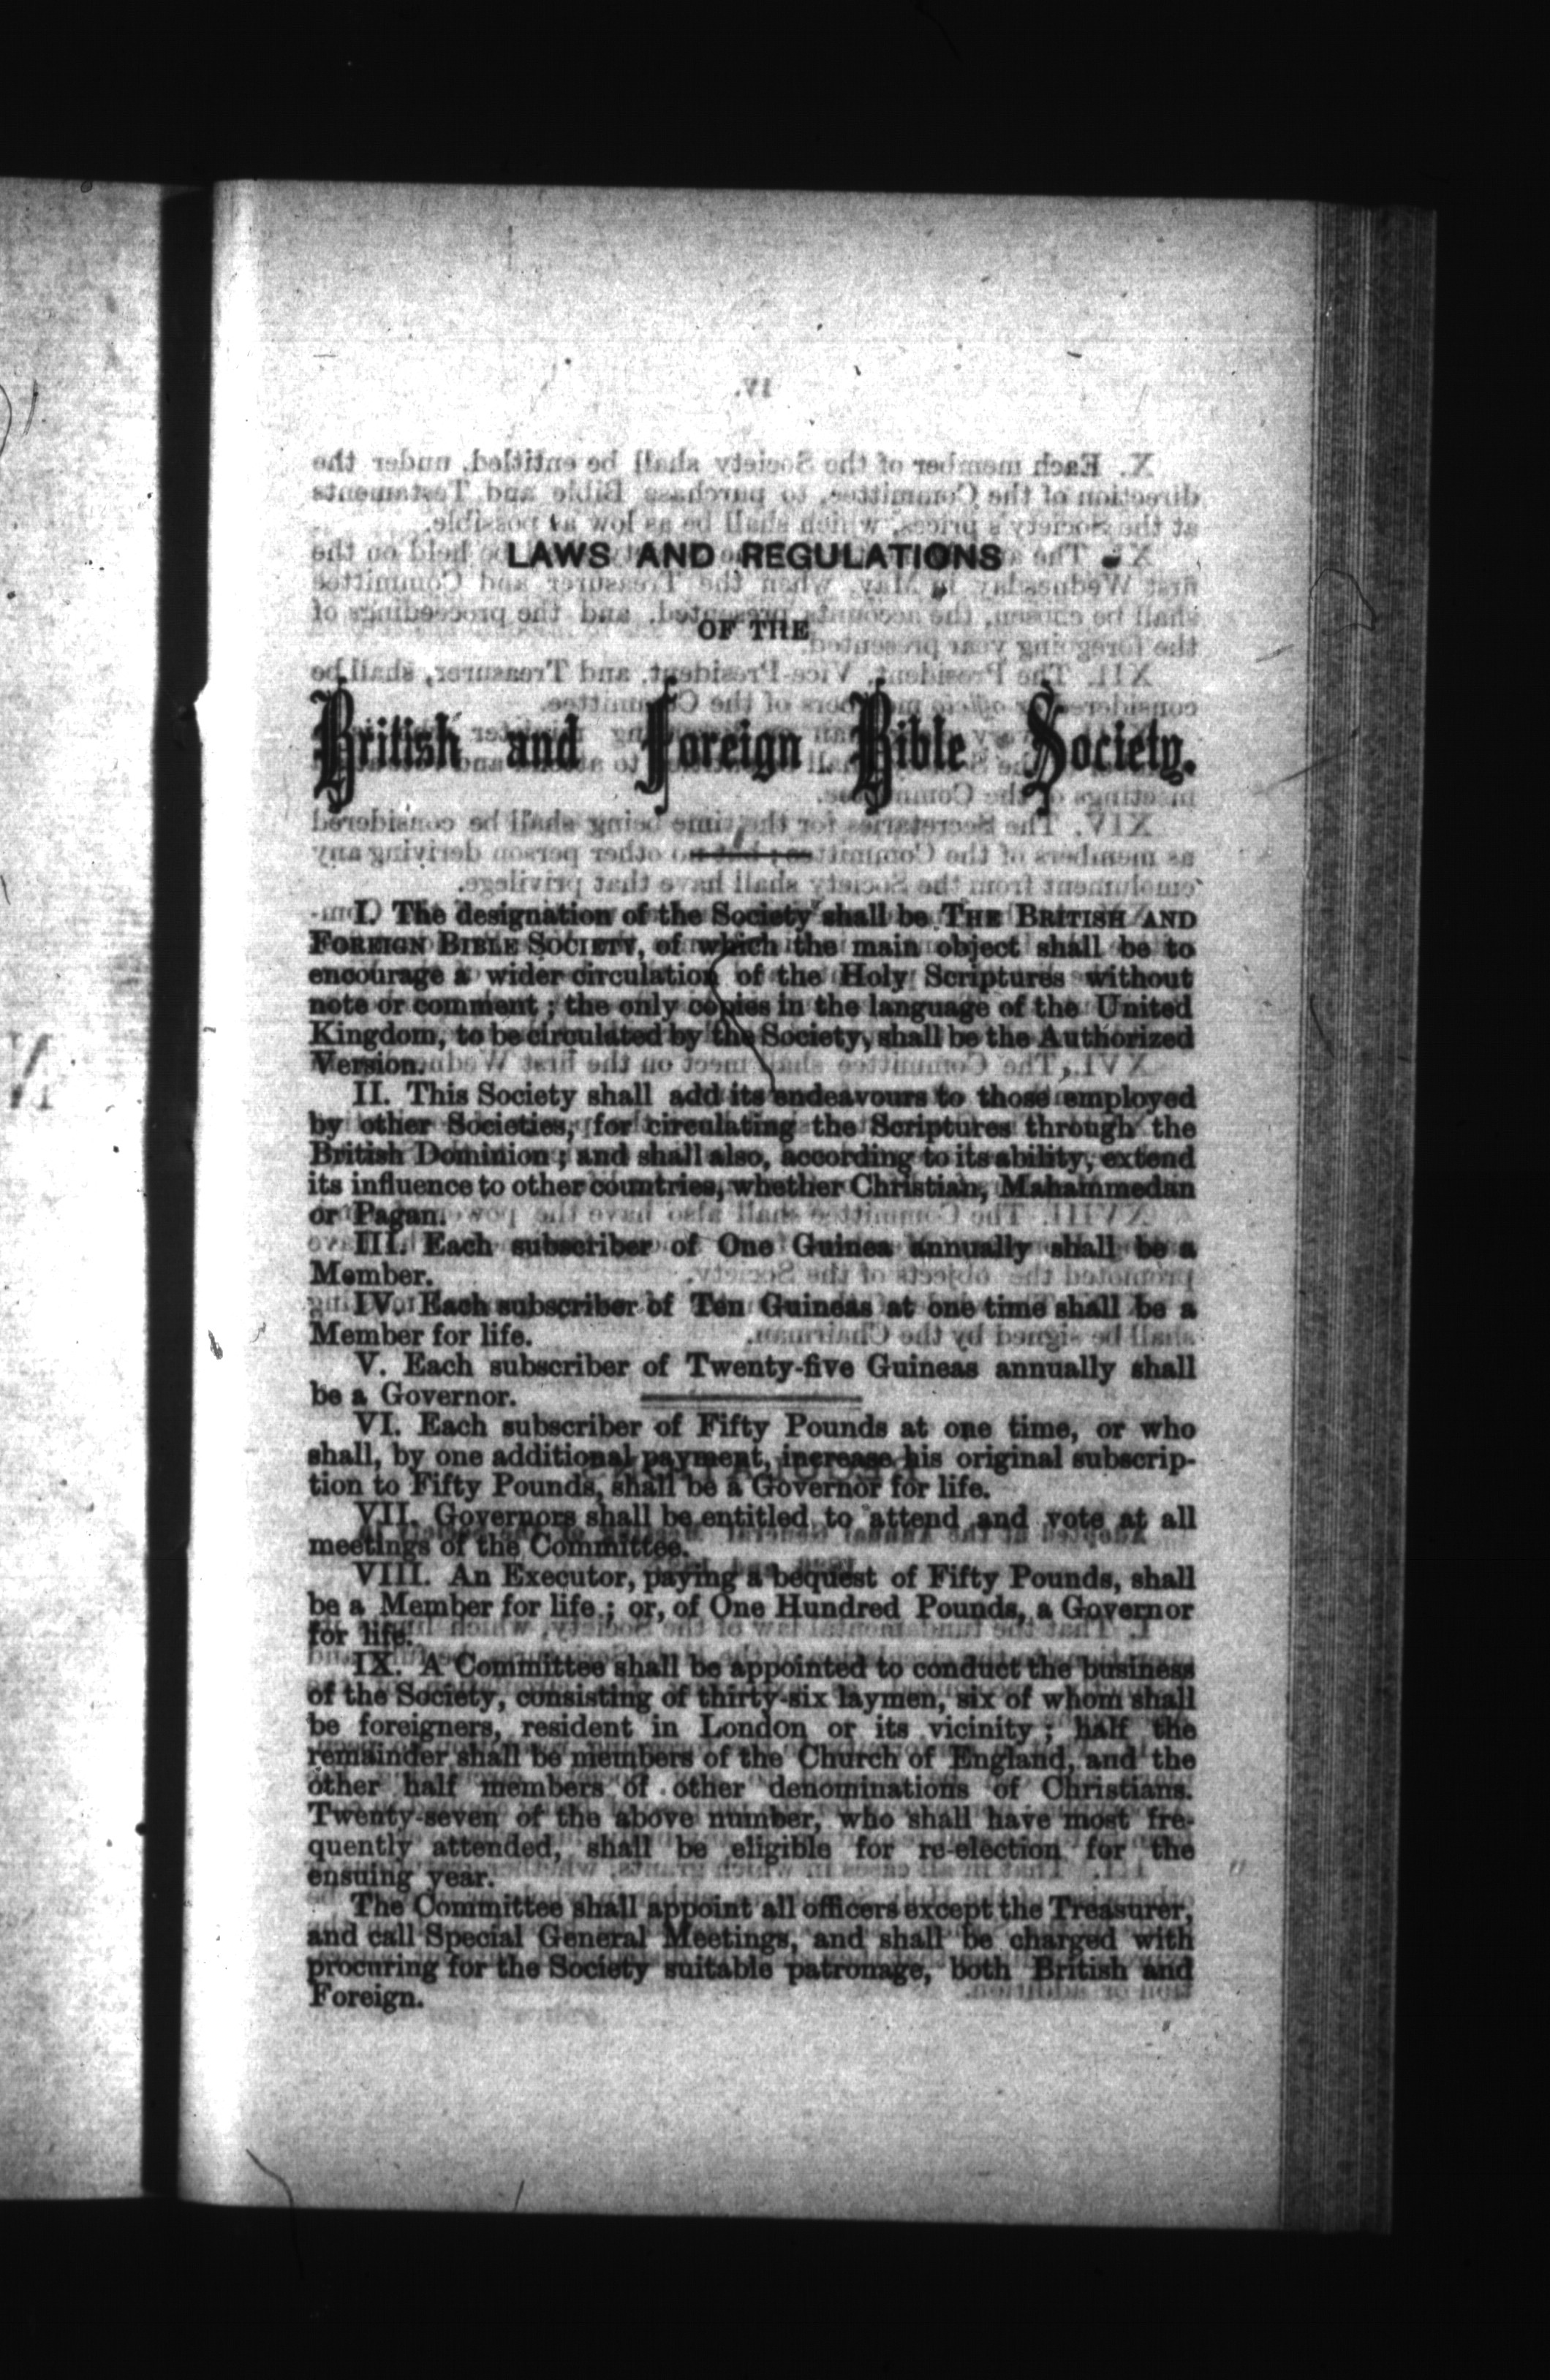 LAWS AND REGULATIONS
OF THE
British and Foreign Bible Society.
I. The designation of the Society shall be THE BRITISH AND
FOREIGN BIBLE SOCIETY, of which the main object shall be to
encourage a wider circulation of the Holy Scriptures without
note or comment ; the only copies in the language of the United
Kingdom, to be circulated by the Society, shall be the Authorized
Version.
II. This Society shall add its endeavours to those employed
by other Societies, for circulating the Scriptures through the
British Dominion ; and shall also, according to its ability, extend
its influence to other countries, whether Christian, Mahammedan
or Pagan.
III. Each subscriber of One Guinea annually shall be a
Member.
IV. Each subscriber of Ten Guineas at one time shall be a
Member for life.
V. Each subscriber of Twenty-five Guineas annually shall
be a Governor.
VI. Each subscriber of Fifty Pounds at one time, or who
shall, by one additional payment, increase his original subscrip-
tion to Fifty Pounds, shall be a Governor for life.
VII. Governors shall be entitled to attend and vote at all
meetings of the Committee.
VIII. An Executor, paying a bequest of Fifty Pounds, shall
be a Member for life ; or, of One Hundred Pounds, a Governor
for life.
IX. A Committee shall be appointed to conduct the business
of the Society, consisting of thirty-six laymen, six of whom shall
be foreigners, resident in London or its vicinity ; half the
remainder shall be members of the Church of England, and the
other half members of other denominations of Christians.
Twenty-seven of the above number, who shall have most fre-
quently attended, shall be eligible for re-election for the
ensuing year.
The Committee shall appoint all officers except the Treasurer,
and call Special General Meetings, and shall be charged with
procuring for the Society suitable patronage, both British and
Foreign.